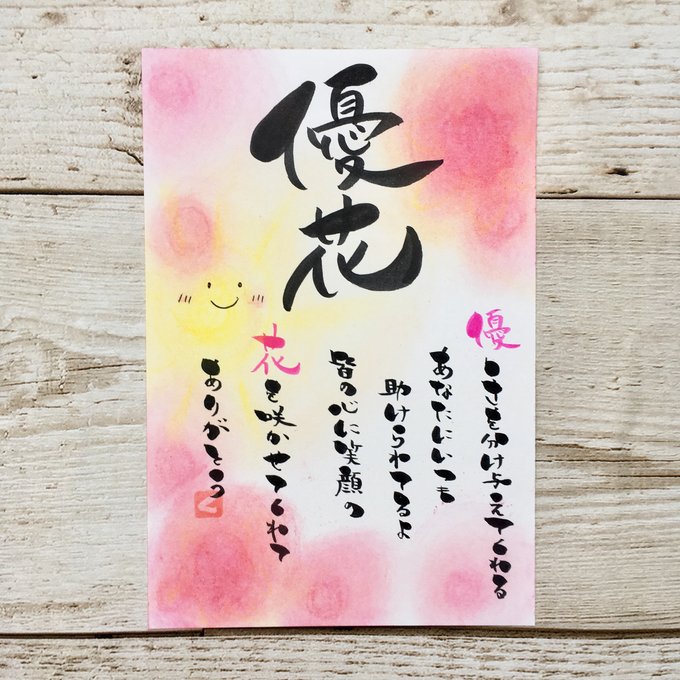 優花
優しさを分け与えてくれる
あなたにいつも
助けられてるよ
皆の心に笑顔の
花を咲かせてくれて
ありがとう